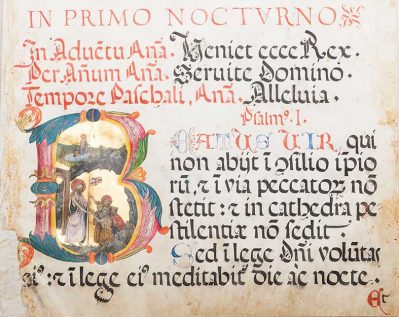 IN PRIMO NOCTVRNO
In Advētu Anā. Veniet ecce Rex.
Per Añum Anā. Seruite Domino.
Tempore Paschali, Anā. Alleluia.
Psalmº. I.
BEATUS UIR, qui
non abijt ī ꝯsilio īpio
rū, ⁊ ī via peccatoꝝ nō
stetit: ⁊ in cathedra pe
stilentiæ nō sedit
Sed ī lege Dñi volūtas
eiº: ⁊ ī lege eiº meditabit̄ die ac nocte.
Et